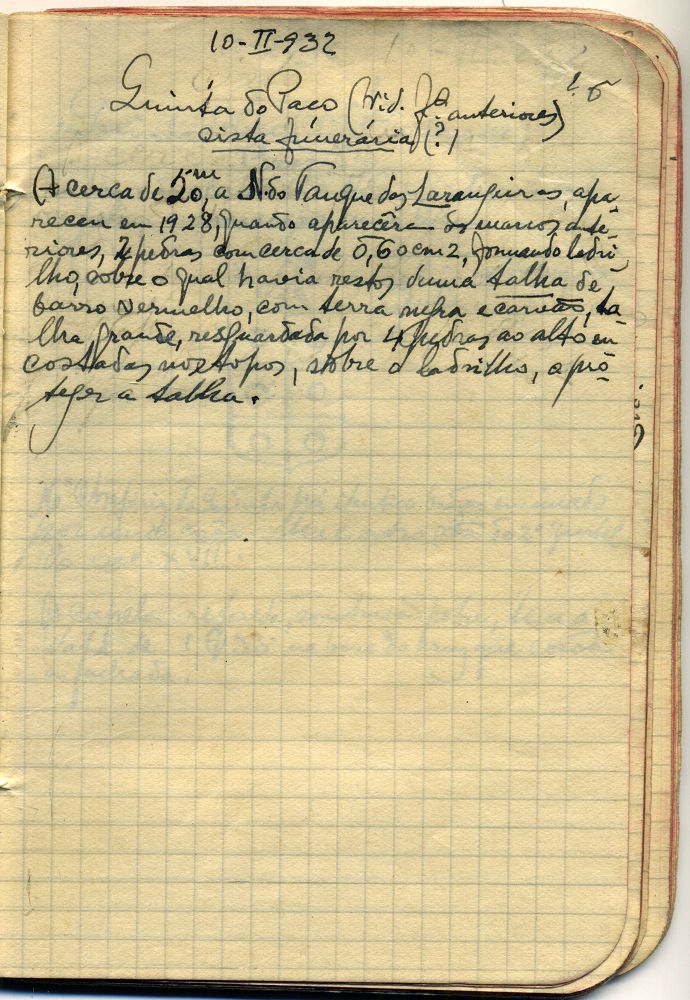 10-II-932
Quinta do Paço (Vid. fª anteriores)
cista funerária (?)
A cerca de 50m, a N. do Tanque das Larangeiras, apa-
receu em 1928, quando aparecêram os muros ante-
riores, 2 pedras com cerca de 0,60cm2, formando ladri-
lho, sobre o qual havia restos duma talha de
barro vermelho, com terra negra e carvão, ta-
lha grande, resguardada por 4 pedras ao alto en-
costadas nos topos, sobre o ladrilho, a pro-
teger a talha.